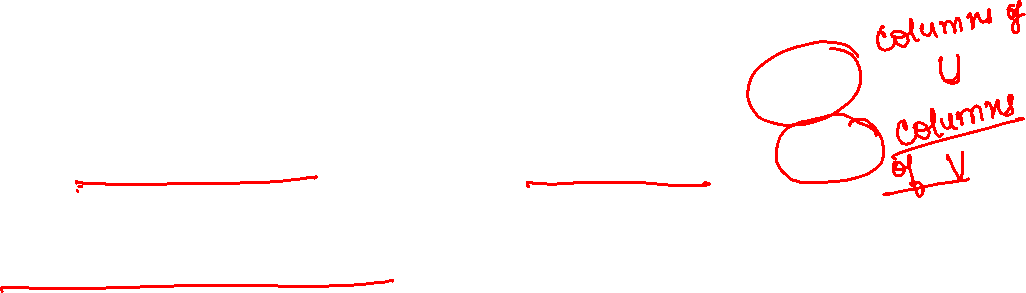 columns of
U
columns
of V